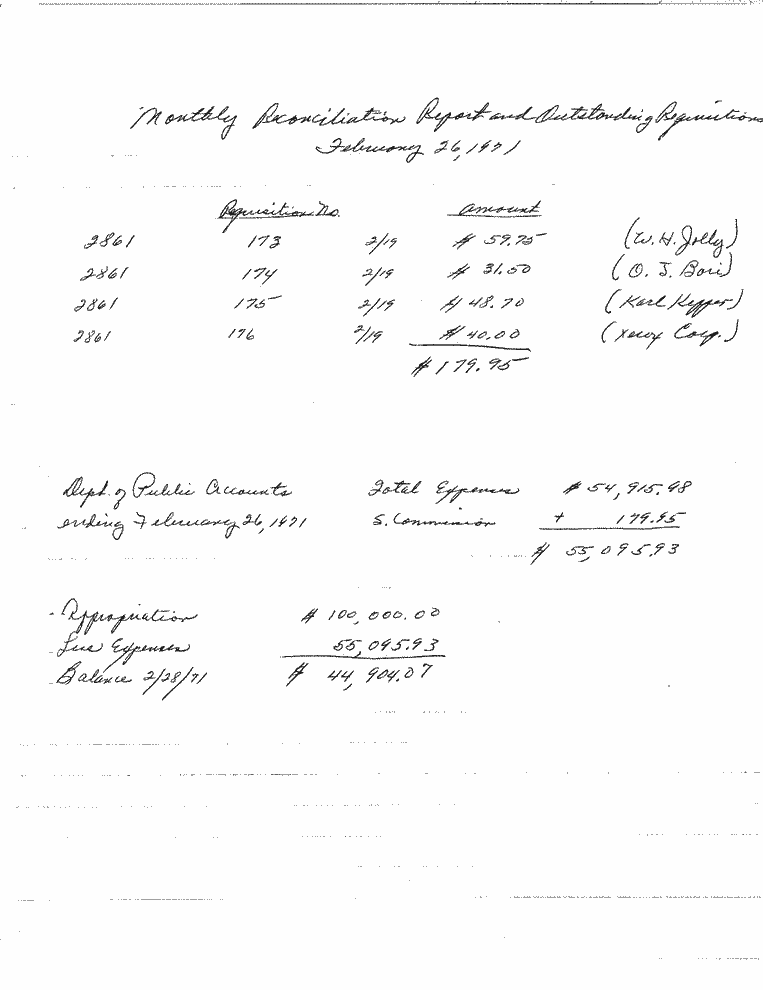 Monthly Reconciliation Report and Outstanding Requisitions
February 26, 1971
Requisition No. Amount
2861 173 2/19 $ 59.75 (W. H. Jolly)
2861 174 2/19 $ 31.50 (O. J. Bori)
2861 175 2/19 $ 48.70 (Karl Kepper)
2861 176 2/19 $ 40.00 (Xerox Corp.)
$ 179.95
Dept. of Public Accounts Total Expenses $ 54,915.98
ending February 26, 1971 S. Commission + 179.95
$ 55,095.93
Appropriation $ 100,000.00
Less Expenses 55,095.93
Balance 2/28/71 $ 44,904.07